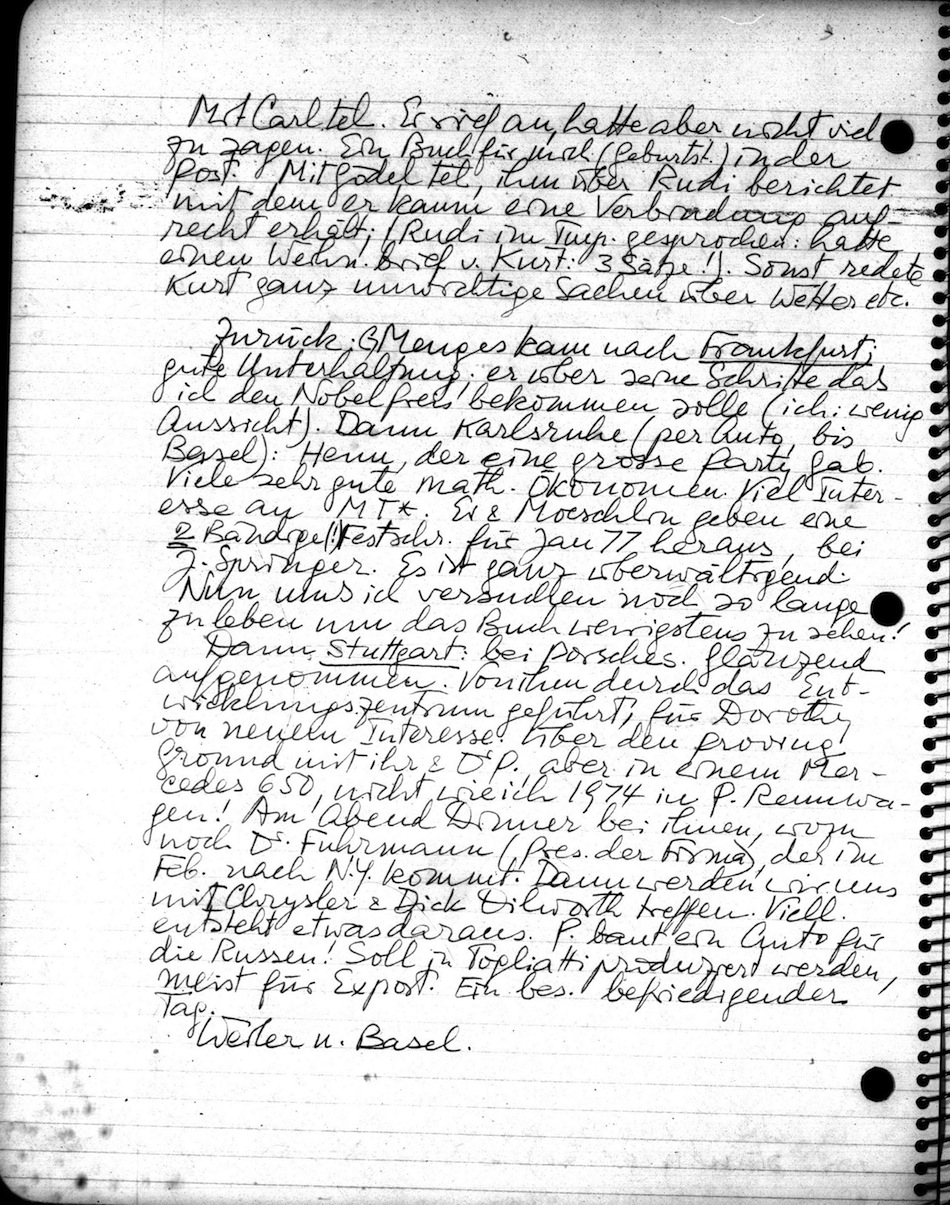 Mit Carl tel. Er rief an, hatte aber nicht viel
zu sagen. Ein Buch für mich (Geburtst.) in der
Post. Mit Gödel tel, ihm über Rudi berichtet
mit dem er kaum eine Verbindung auf-
recht erhält; (Rudi im Imp. gesprochen: hatte
einen Weihn. brief v. Kurt: 3 Sätze!). Sonst redete
Kurt ganz unwichtige Sachen über Wetter etc.
Zurück: G Menges kam nach Frankfurt;
gute Unterhaltung; er über seine Schritte das
ich den Nobelpreis bekommen solle (ich: wenig
Aussicht). Dann Karlsruhe (per Auto, bis
Basel): Henn, der eine grosse Party gab.
Viele sehr gute math. Ökonomen. Viel Inter-
esse an MT*. Er & Moeschlin geben eine
2 Bändige(!) Festschr. für Jan 77 heraus, bei
J. Springer. Es ist ganz überwältigend.
Nun muss ich versuchen noch so lange
zu leben um das Buch wenigstens zu sehen!
Dann Stuttgart: bei Porsches. Glänzend
aufgenommen. Von ihm durch das Ent-
wicklungszentrum geführt, für Dorothy
von neuem Interesse. Über den proving
ground mit ihr & Dr P., aber in einem Mer-
cedes 650, nicht wie ich 1974 in P. Rennwa-
gen! Am Abend Dinner bei ihnen, wozu
noch Dr. Fuhrmann (Pres. der Firma), der im
Feb. nach N.Y. kommt. Dann werden wir uns
mit Chrysler & Dick Dilworth treffen. Viell.
entsteht etwas daraus. P. baut ein Auto für
die Russen! Soll in Togliatti produziert werden,
meist für Export. Ein bes. befriedigender
Tag.
Weiter n. Basel.